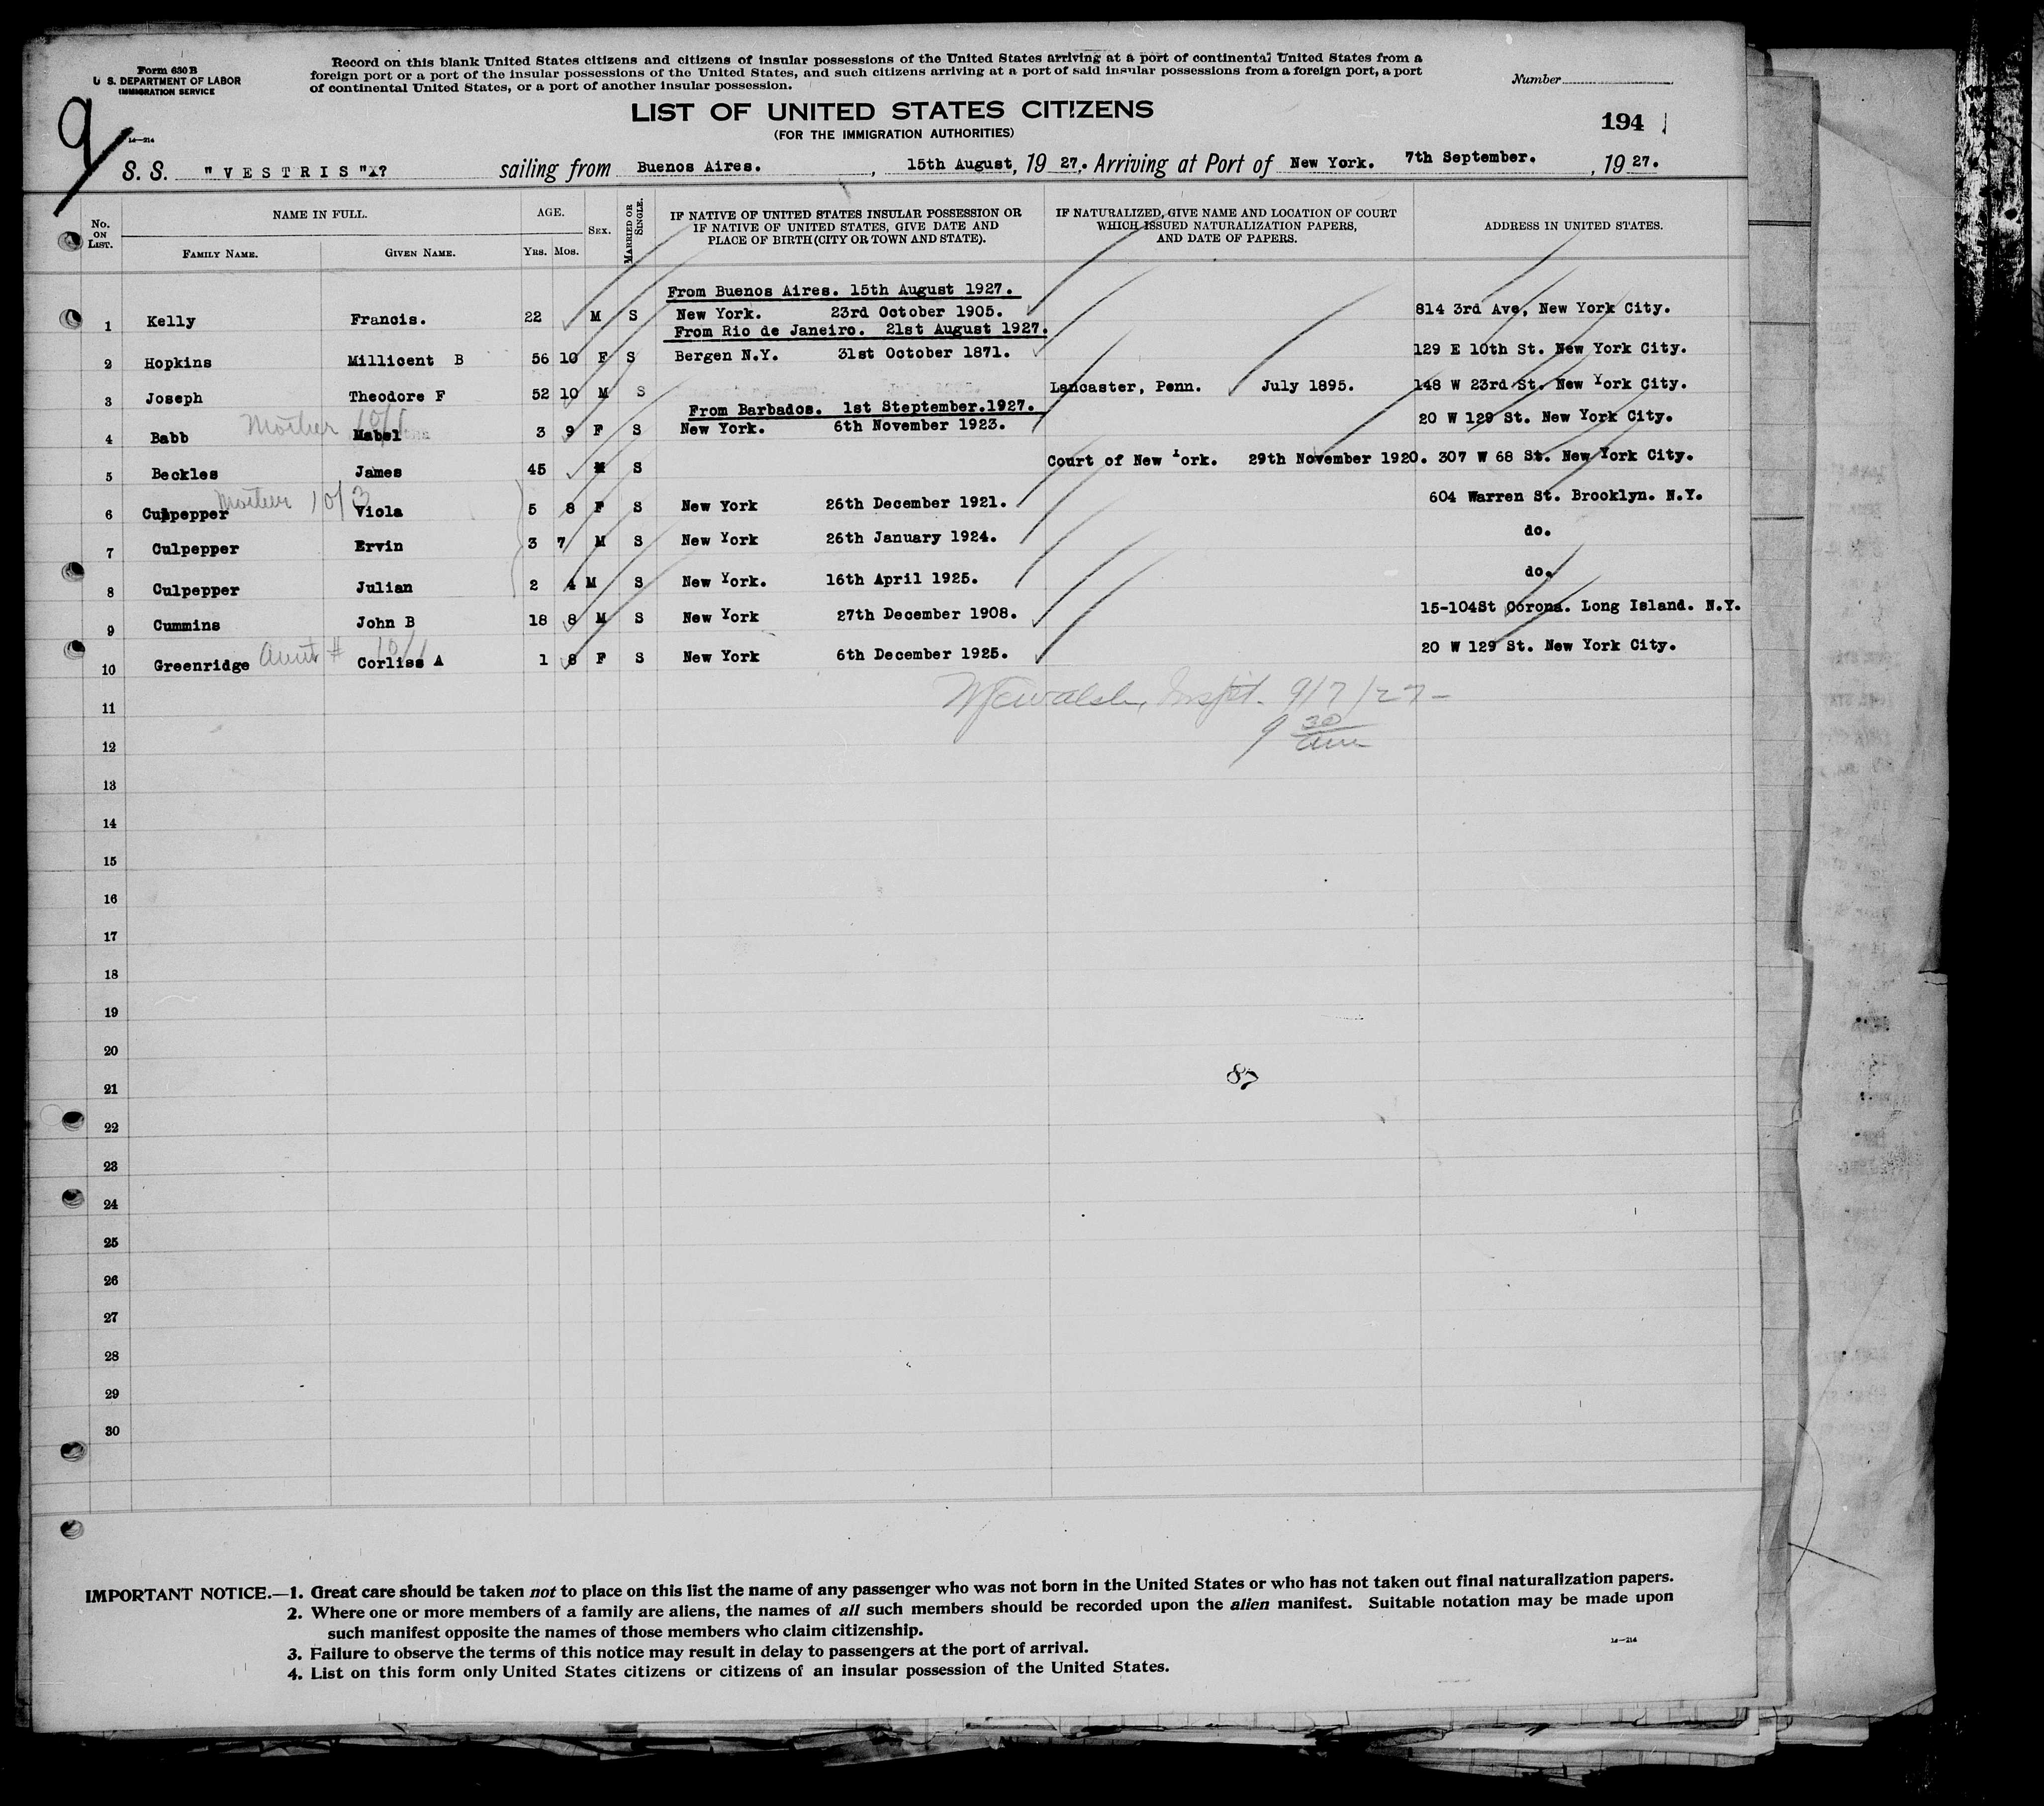 Form 630 B
U S. DEPARTMENT OF LABOR
IMMIGRATION SERVICE
Record on this blank United States citizens and citizens of insular possessions of the United States arriving at a port of continental United States from a
foreign port or a port of the insular possessions of the United States, and such citizens arriving at a port of said insular possessions from a foreign port, a port
of continental United States, or a port of another insular possession.
Number
9
14—214
LIST OF UNITED STATES CITIZENS
(FOR THE IMMIGRATION AUTHORITIES)
194
S. S. "VESTRIS" sailing from Buenos Aires. , 15th August, 19 27. Arriving at Port of New York. 7th September. , 19 27.
No. ON LIST.
NAME IN FULL.
FAMILY NAME. GIVEN NAME.
AGE.
YRS. MOS.
SEX.
MARRIED OR SINGLE.
IF NATIVE OF UNITED STATES INSULAR POSSESSION OR
IF NATIVE OF UNITED STATES, GIVE DATE AND
PLACE OF BIRTH (CITY OR TOWN AND STATE).
IF NATURALIZED, GIVE NAME AND LOCATION OF COURT
WHICH ISSUED NATURALIZATION PAPERS,
AND DATE OF PAPERS.
ADDRESS IN UNITED STATES.
From Buenos Aires. 15th August 1927.
1 Kelly Francis. 22 M S New York. 23rd October 1905. 814 3rd Ave, New York City.
From Rio de Janeiro. 21st August 1927.
2 Hopkins Millicent B 56 10 F S Bergen N.Y. 31st October 1871. 129 E 10th St. New York City.
3 Joseph Theodore F 52 10 M S Lancaster, Penn. July 1895. 148 W 23rd St. New York City.
From Barbados. 1st Steptember.1927.
Mother 10/1
4 Babb Mabel 3 9 F S New York. 6th November 1923. 20 W 129 St. New York City.
5 Beckles James 45 M S Court of New York. 29th November 1920. 307 W 68 St. New York City.
Mother 10/3
6 Culpepper Viola 5 8 F S New York 26th December 1921. 604 Warren St. Brooklyn. N.Y.
7 Culpepper Ervin 3 7 M S New York 26th January 1924. do.
8 Culpepper Julian 2 4 M S New York. 16th April 1925. do.
9 Cummins John B 18 8 M S New York 27th December 1908. 15-104St Corona. Long Island. N.Y.
10 Greenridge Aunt # 10/1 Corliss A 1 8 F S New York 6th December 1925. 20 W 129 St. New York City.
11
9/7/27-
9 30
am
12
13
14
15
16
17
18
19
20
87
21
22
23
24
25
26
27
28
29
30
IMPORTANT NOTICE.—1. Great care should be taken not to place on this list the name of any passenger who was not born in the United States or who has not taken out final naturalization papers.
2. Where one or more members of a family are aliens, the names of all such members should be recorded upon the alien manifest. Suitable notation may be made upon
such manifest opposite the names of those members who claim citizenship.
3. Failure to observe the terms of this notice may result in delay to passengers at the port of arrival.
14—214
4. List on this form only United States citizens or citizens of an insular possession of the United States.